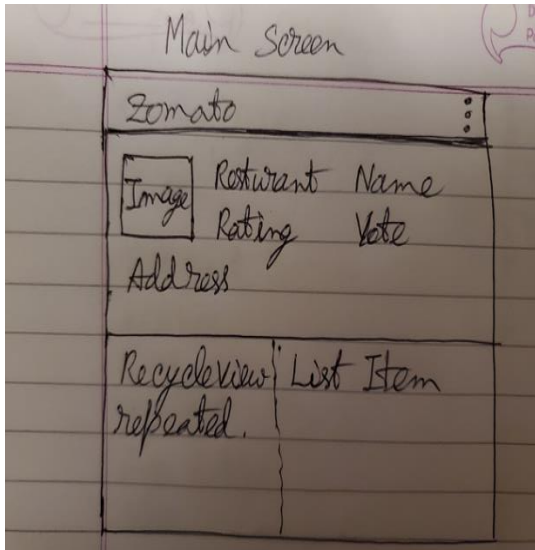 Main Screen
Zomato
Image
Resturant Name
Rating Vote
Address
Recycleview List Item
repeated.